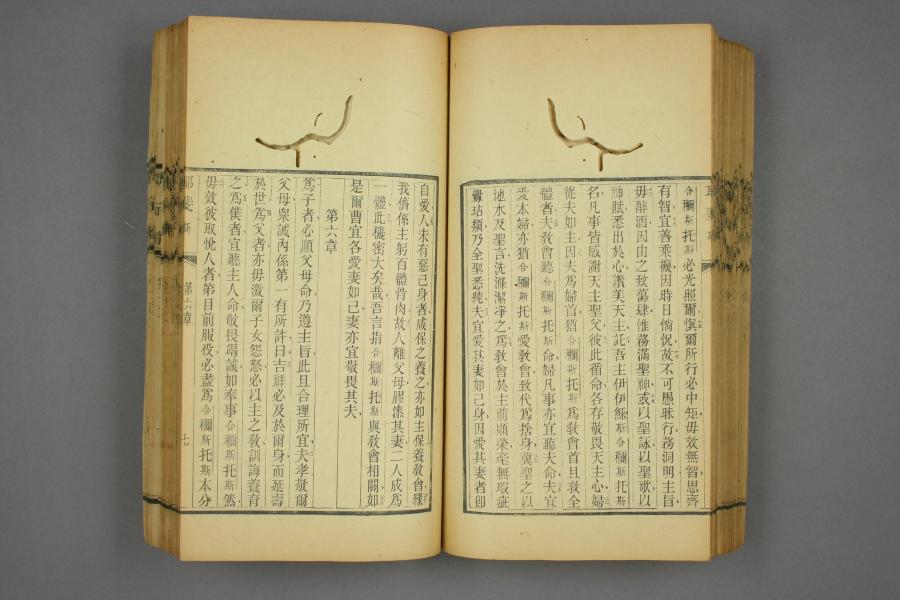 合穪斯托斯必光照爾愼爾所行必中矩毋效無智思齊
有智宜善乘機因時日惝怳故不可愚昧行務洞明主旨
毋醉酒因由之致蕩肆惟務滿聖神或以聖詠以聖歌以
神賦悉出於心讚美天主託吾主伊伊穌合穪斯托斯
名凡事皆感謝天主聖父彼此循命各存敬畏天主心婦
從夫如主因夫爲婦首猶合穪斯托斯爲教會首且救全
體者夫教會聽合穪斯托斯命婦凡事亦宜聽夫命夫宜
愛本婦亦猶合穪斯托斯愛教會致代爲捨身冀聖之以
池水及聖言洗滌潔凈之爲教會於主前顯榮毫無瑕疵
釁玷類乃全聖悉純夫宜愛其妻如己身因愛其妻者卽
自愛人未有惡己身者咸保之養之亦如主保養教會緣
我儕係主躬百體骨肉故人離父母膠漆其妻二人成爲
一體此機密大矣哉吾言指合穪斯托斯與教會相關如
是爾曹宜各愛妻如己妻亦宜敬畏其夫
第六章
爲子者必順父母命乃遵主旨此且合理所宜夫孝敬爾
父母衆誡內係第一有所許曰吉祥必及於爾身而延壽
於世爲父者亦毋激爾子女怨怒必以主之教訓誨養育
之爲僕者宜聽主人命敬畏竭誠如奉事合穪斯托斯然
毋效彼取悅人者第目前服役必盡爲合穪斯托斯本分
第六章
七